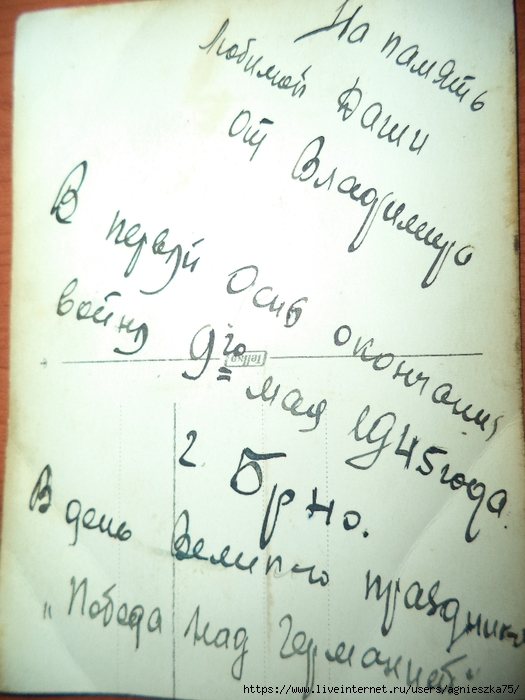 На память
любимой Даши
от Владимира
В первый день окончания
войны 9го мая 1945 года.
telka
г. Брно.
В день Великого праздника
„Победа над Германией"
https://www.liveinternet.ru/users/agnieszka75/